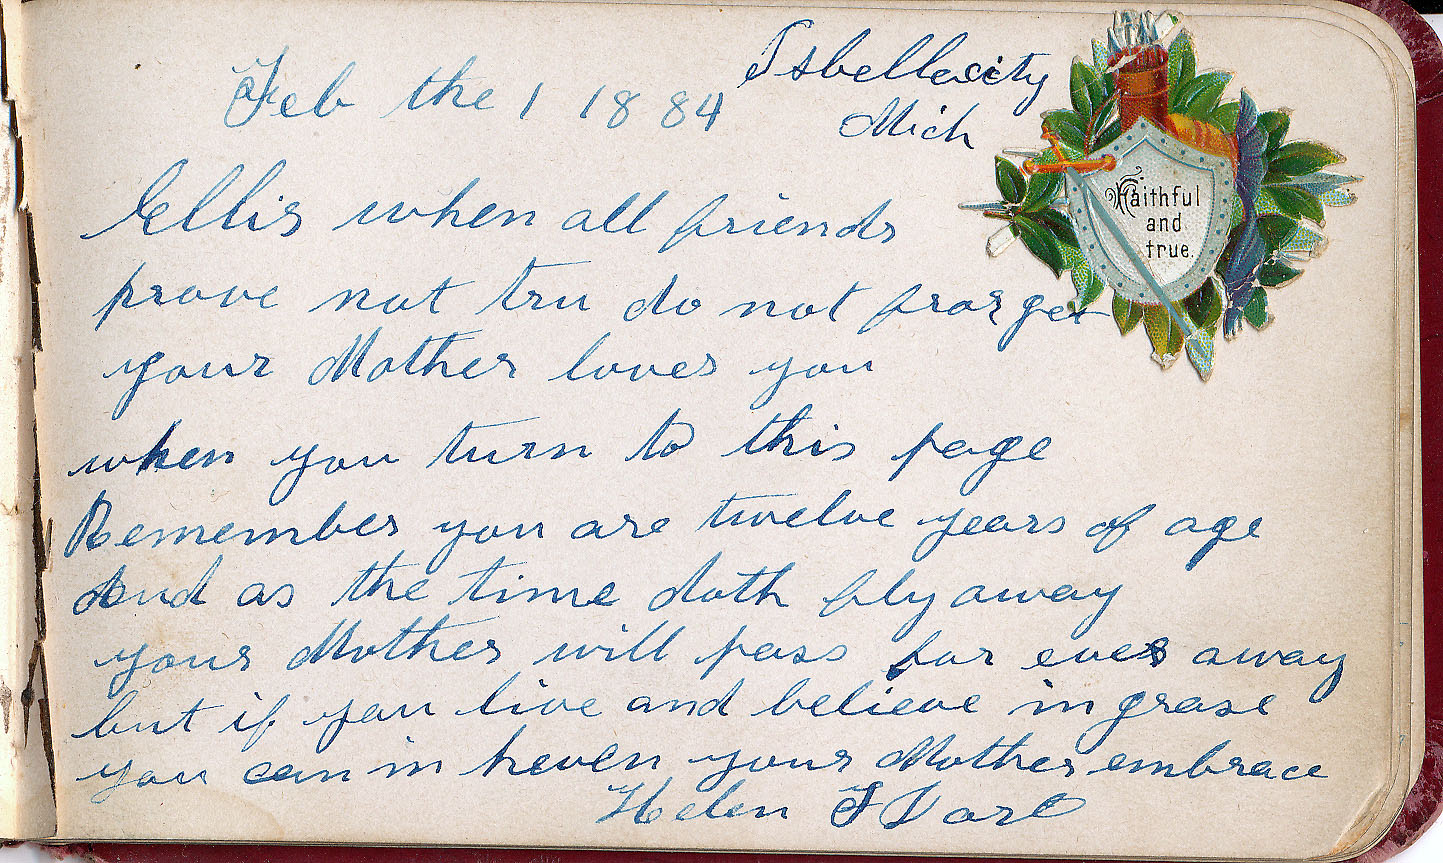 Feb the 1 1884
Isbellacity
Mich
Faithful
and
true.
Ellis when all friends
prove not tru do not frorget
your Mother loves you
when you turn to this page
Remember you are twelve years of age
And as the time doth fly away
your Mother will pass for ever away
but if you live and believe in grase
you can in heven your Mother embrace
Helen